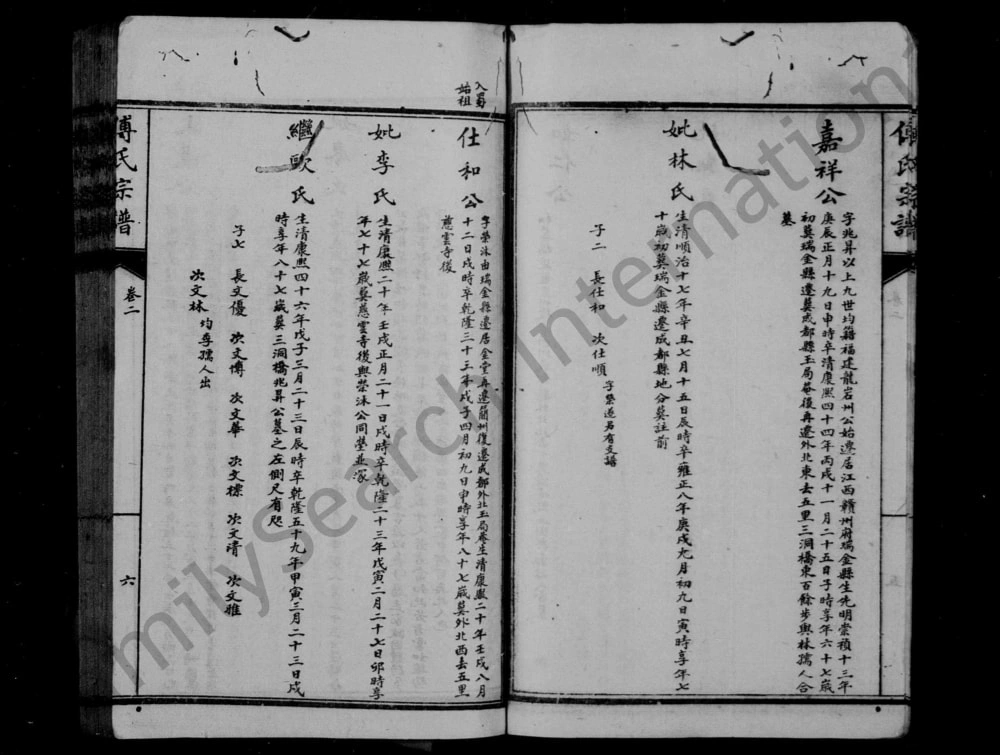 傅氏宗譜
嘉祥公
字兆昇以上九世均籍福建龍岩州公始遷居江西贛州府瑞金縣生先明崇禎十三年
庚辰正月十九日申時卒清康熙四十四年丙戌十一月二十五日子時享年六十七歲
初葬瑞金縣遷葬成都縣玉局菴後再遷外北東去五里三洞橋東百餘步與林孺人合
墓
妣林氏
生清順治十七年辛丑七月十五日辰時卒雍正八年庚戌九月初九日寅時享年七
十歲初葬瑞金縣遷成都縣地分葬註前
子二 長仕和 次仕順 字榮進另有支譜
入蜀
始祖
仕和公
字榮沐由瑞金縣遷居金堂再遷簡州復遷成都外北玉局菴生清康熙二十年壬戌八月
十二日戌時卒乾隆三十三年戊子四月初九日申時享年八十七歲葬外北西去五里
慈雲寺後
妣李氏
生清康熙二十年壬戌正月二十一日戌時卒乾隆二十三年戊寅二月二十七日卯時享
年七十七歲葬慈雲寺後與榮沐公同塋並冢
繼歐氏
生清康熙四十六年戊子三月二十三日辰時卒乾隆五十九年甲寅三月二十三日戌
時享年八十七歲葬三洞橋兆昇公墓之左側尺有咫
子七 長文優 次文博 次文華 次文標 次文清 次文雅
次文林 均李孺人出
傅氏宗譜
卷二
六
milySearch International